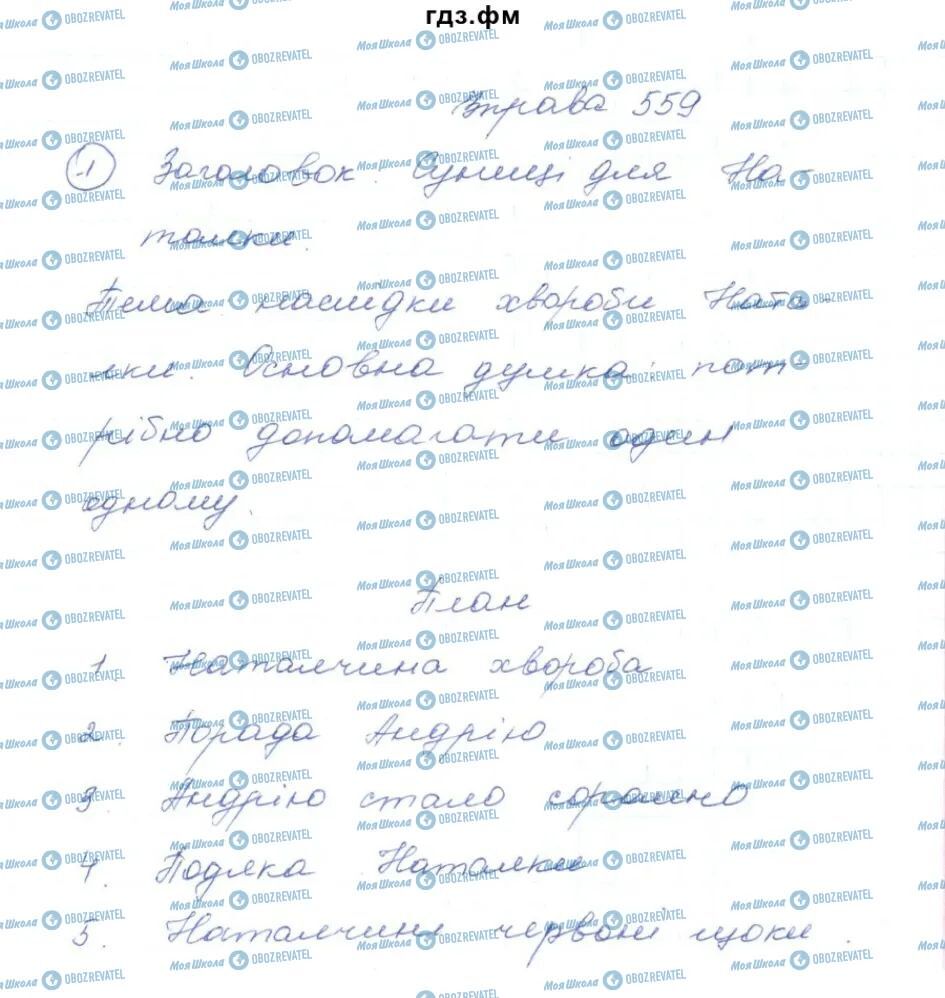 гдз.фм
Вправа 559
1 Заголовок. Суниці для На-
талки.
Тема: наслідки хвороби Ната-
лки. Основна думка: пот-
рібно допомагати один
одному.
План
1. Наталчина хвороба
2. Порада Андрію
3. Андрію стало соромно
4. Подяка Наталки
5. Наталчині червоні щоки.
Моя Школа OBOZREVATEL